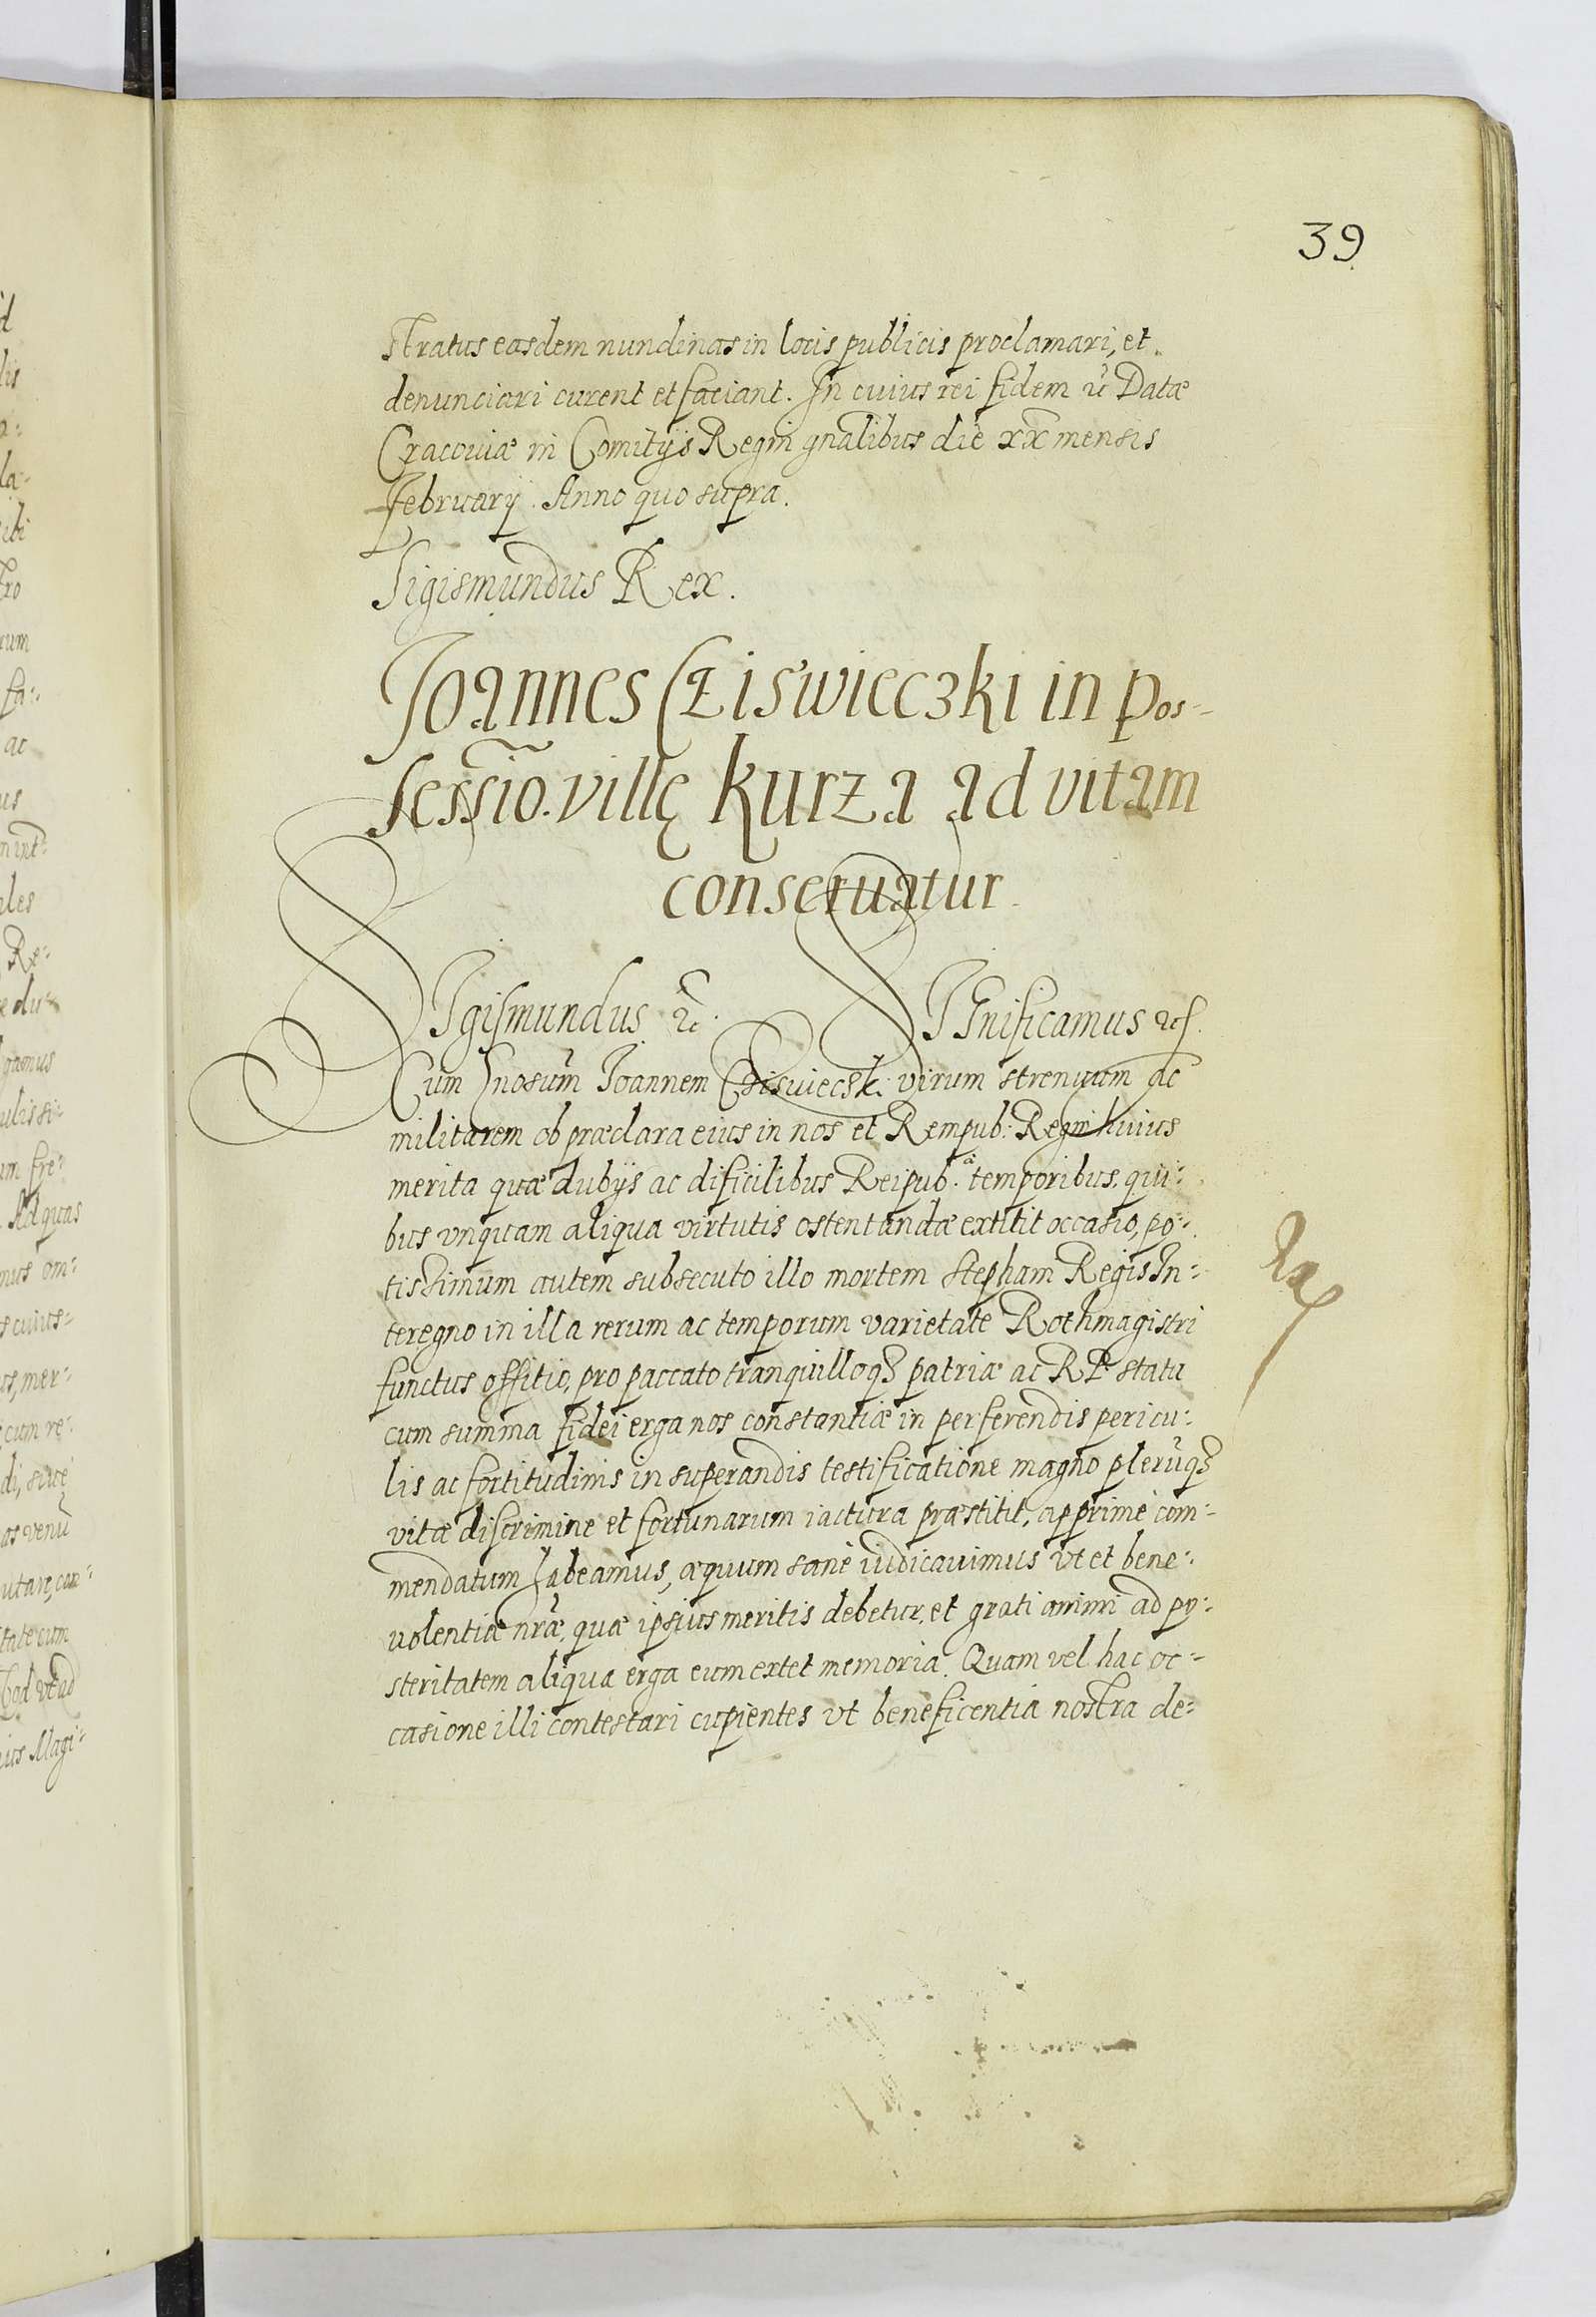 39
stratus easdem nundinas in locis publicis proclamari, et
denunciari curent et faciant. In cuius rei fidem etc Datæ
Cracouiæ in Comitijs Regni gnalibus die xx mensis
February. Anno quo supra.
Sigismundus Rex.
Joannes Cziswieczki in pos-
sessio. villę Kurza ad vitam
conseruatur
SIgismundus etc. SIGnificamus etc.
Cum Gnosum Joannem Cziswieczk: virum strenuum ac
militarem ob præclara eius in nos et Rempub: Regni huius
merita quæ dubijs ac dificilibus Reipub. temporibus, qui:
bus vnquam aliqua virtutis ostentandæ extitit occasio, po:
tissimum autem subsecuto illo mortem Stephani Regis In:
teregno in illa rerum ac temporum varietate Rothmagistri
functus offitio, pro paccato tranquilloqȝ patriæ ac R P. statu
cum summa fidei erga nos constantiæ in perferendis pericu:
lis ac fortitudinis in superandis testificatione magno pleruqȝ
vitæ discrimine et fortunarum iactura præstitit, apprime com:
mendatum habeamus, æquum sanè iudicauimus vt et bene:
uolentiæ nræ, quæ ipsius meritis debetur, et grati animi ad po:
steritatem aliqua erga eum extet memoria. Quam vel hac oc:
casione illi contestari cupientes vt beneficentia nostra de: